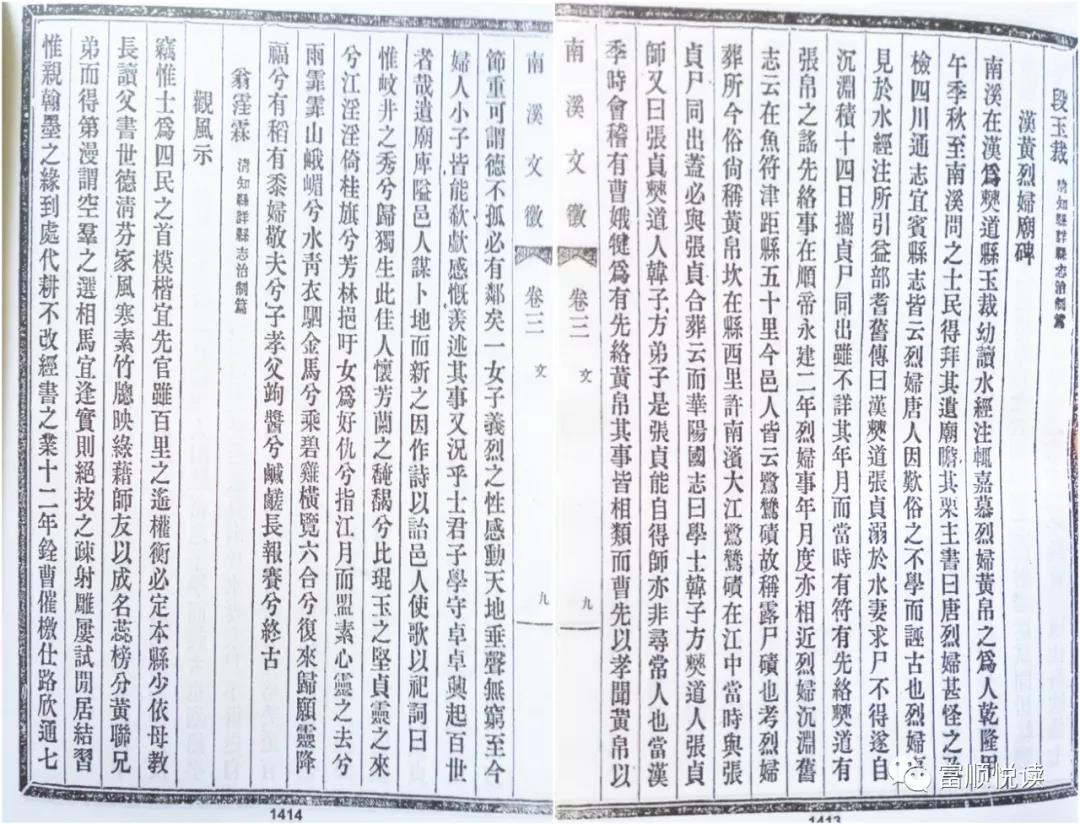 段玉裁 清知縣詳縣志治制篇
漢黃烈婦廟碑
南溪在漢爲僰道縣玉裁幼讀水經注輒嘉慕烈婦黃帛之爲人乾隆甲
午季秋至南溪問之士民得拜其遺廟瞻其栗主書曰唐烈婦甚怪之及
檢四川通志宜賓縣志皆云烈婦唐人因歎俗之不學而誣古也烈婦
見於水經注所引益部耆舊傳曰漢僰道張貞溺於水妻求尸不得遂自
沉淵積十四日攜貞尸同出雖不詳其年月而當時有符有先絡僰道有
張帛之謠先絡事在順帝永建二年烈婦事年月度亦相近烈婦沉淵舊
志云在魚符津距縣五十里今邑人皆云鴛鴦磧故稱露尸磧也考烈婦
葬所今俗尙稱黃帛坎在縣西里許南濱大江鴛鴦磧在江中當時與張
貞尸同出蓋必與張貞合葬云而華陽國志曰學士韓子方僰道人張貞
師又曰張貞僰道人韓子方弟子是張貞能自得師亦非尋常人也當漢
季時會稽有曹娥犍爲有先絡黃帛其事皆相類而曹先以孝聞黃帛以
南溪文徵 卷三 文 九
南溪文徵 卷三 文 九
節重可謂德不孤必有鄰矣一女子義烈之性感動天地垂聲無窮至今
婦人小子皆能欷歔感慨羨述其事又況乎士君子學守卓卓興起百世
者哉遺廟庳隘邑人謀卜地而新之因作詩以詒邑人使歌以祀詞曰
惟岐井之秀兮歸獨生此佳人懷芳蘭之馣馤兮比琨玉之堅貞靈之來
兮江淫淫倚桂旗兮芳林挹吁女爲好仇兮指江月而盟素心靈之去兮
雨霏霏山峨嵋兮水靑衣駟金馬兮乘碧雞橫覽六合兮復來歸願靈降
福兮有稻有黍婦敬夫兮子孝父蒟醬兮鹹鹺長報賽兮終古
翁霔霖 清知縣詳縣志治制篇
觀風示
竊惟士爲四民之首模楷宜先官雖百里之遙權衡必定本縣少依母教
長讀父書世德淸芬家風寒素竹牕映綠藉師友以成名蕊榜分黃聯兄
弟而得第漫謂空羣之選相馬宜逢實則絕技之疎射雕屢試閒居結習
惟親翰墨之緣到處代耕不改經書之業十二年銓曹催檄仕路欣通七
1414
1413
富顺悦读